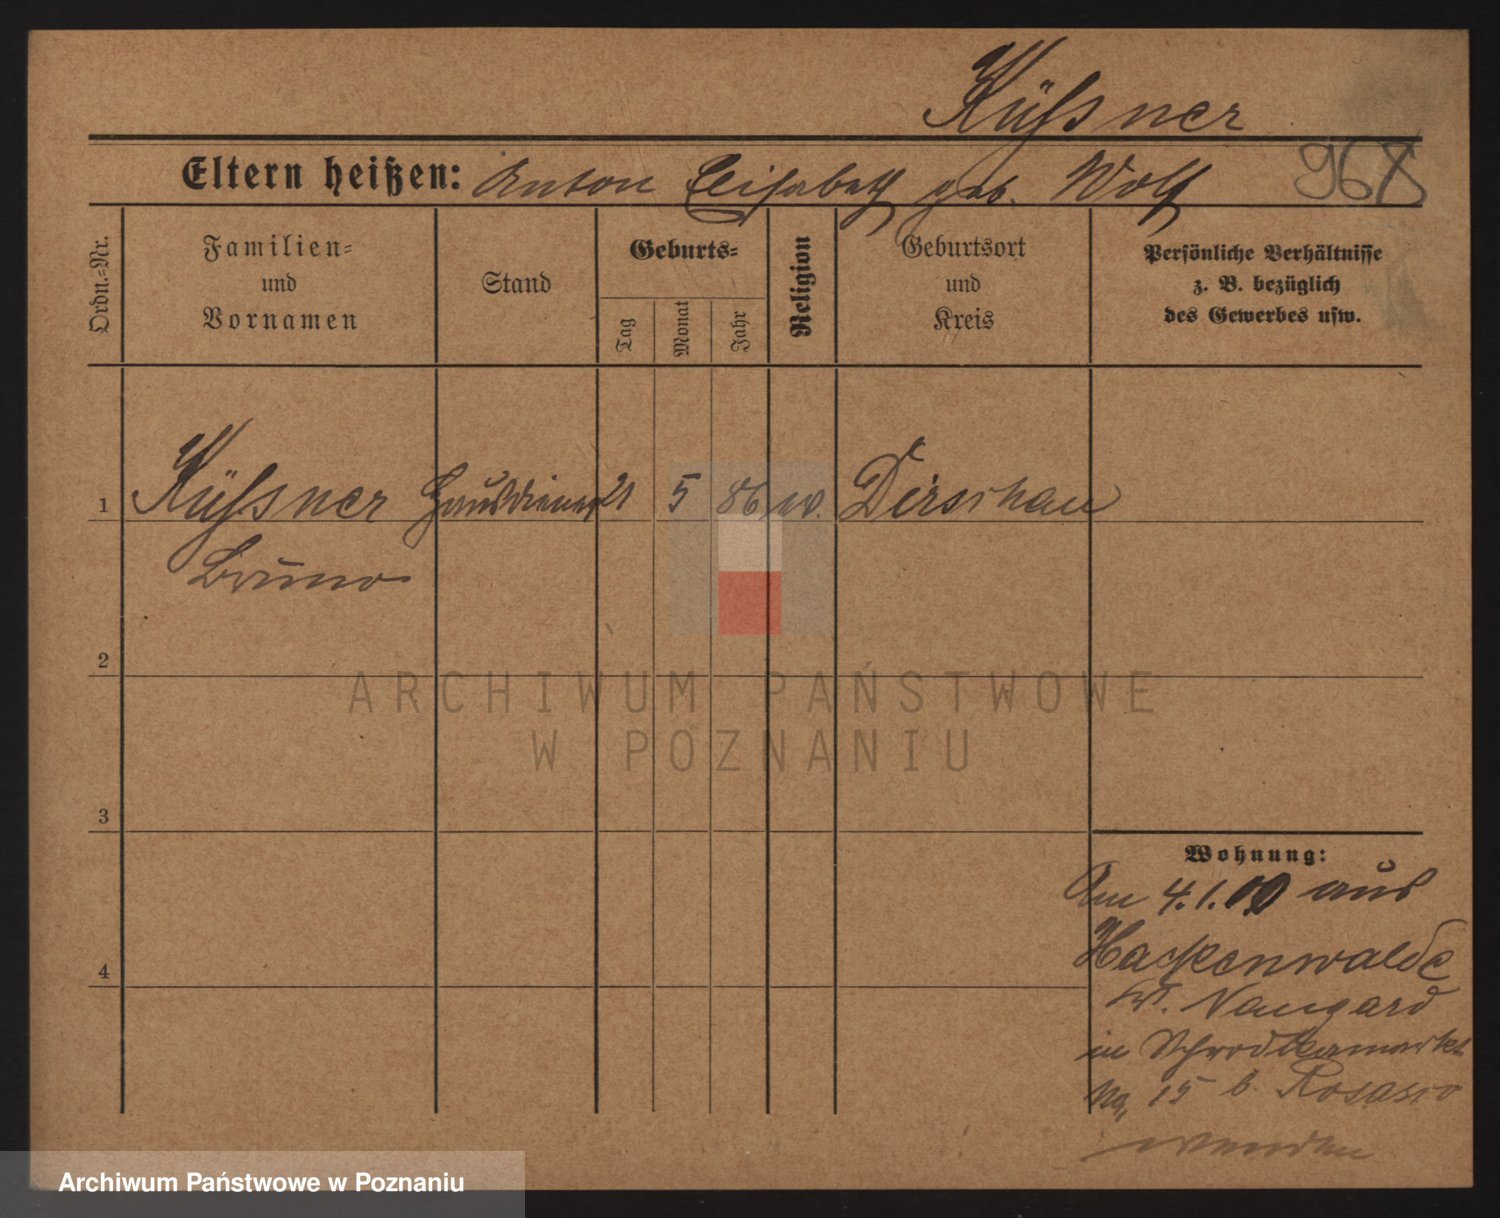 Küßner
968
Eltern heißen: Anton Elisabeth geb. Wolf
Ordn.=Nr.
Familien=
und
Vornamen
Stand
Geburts=
Tag
Monat
Jahr
Religion
Geburtsort
und
Kreis
Persönliche Verhältnisse
z. B. bezüglich
des Gewerbes usw.
1 Küßner Hausdiener 21 5 86 Dirschau
Bruno
2
ARCHIWUM PAŃSTWOWE
W POZNANIU
3
Wohnung:
Am 4.1.09 aus
Hackenwalde
Naugard
in Schrodkamarkt
No 15 b. Rosasio
wenden
4
Archiwum Państwowe w Poznaniu